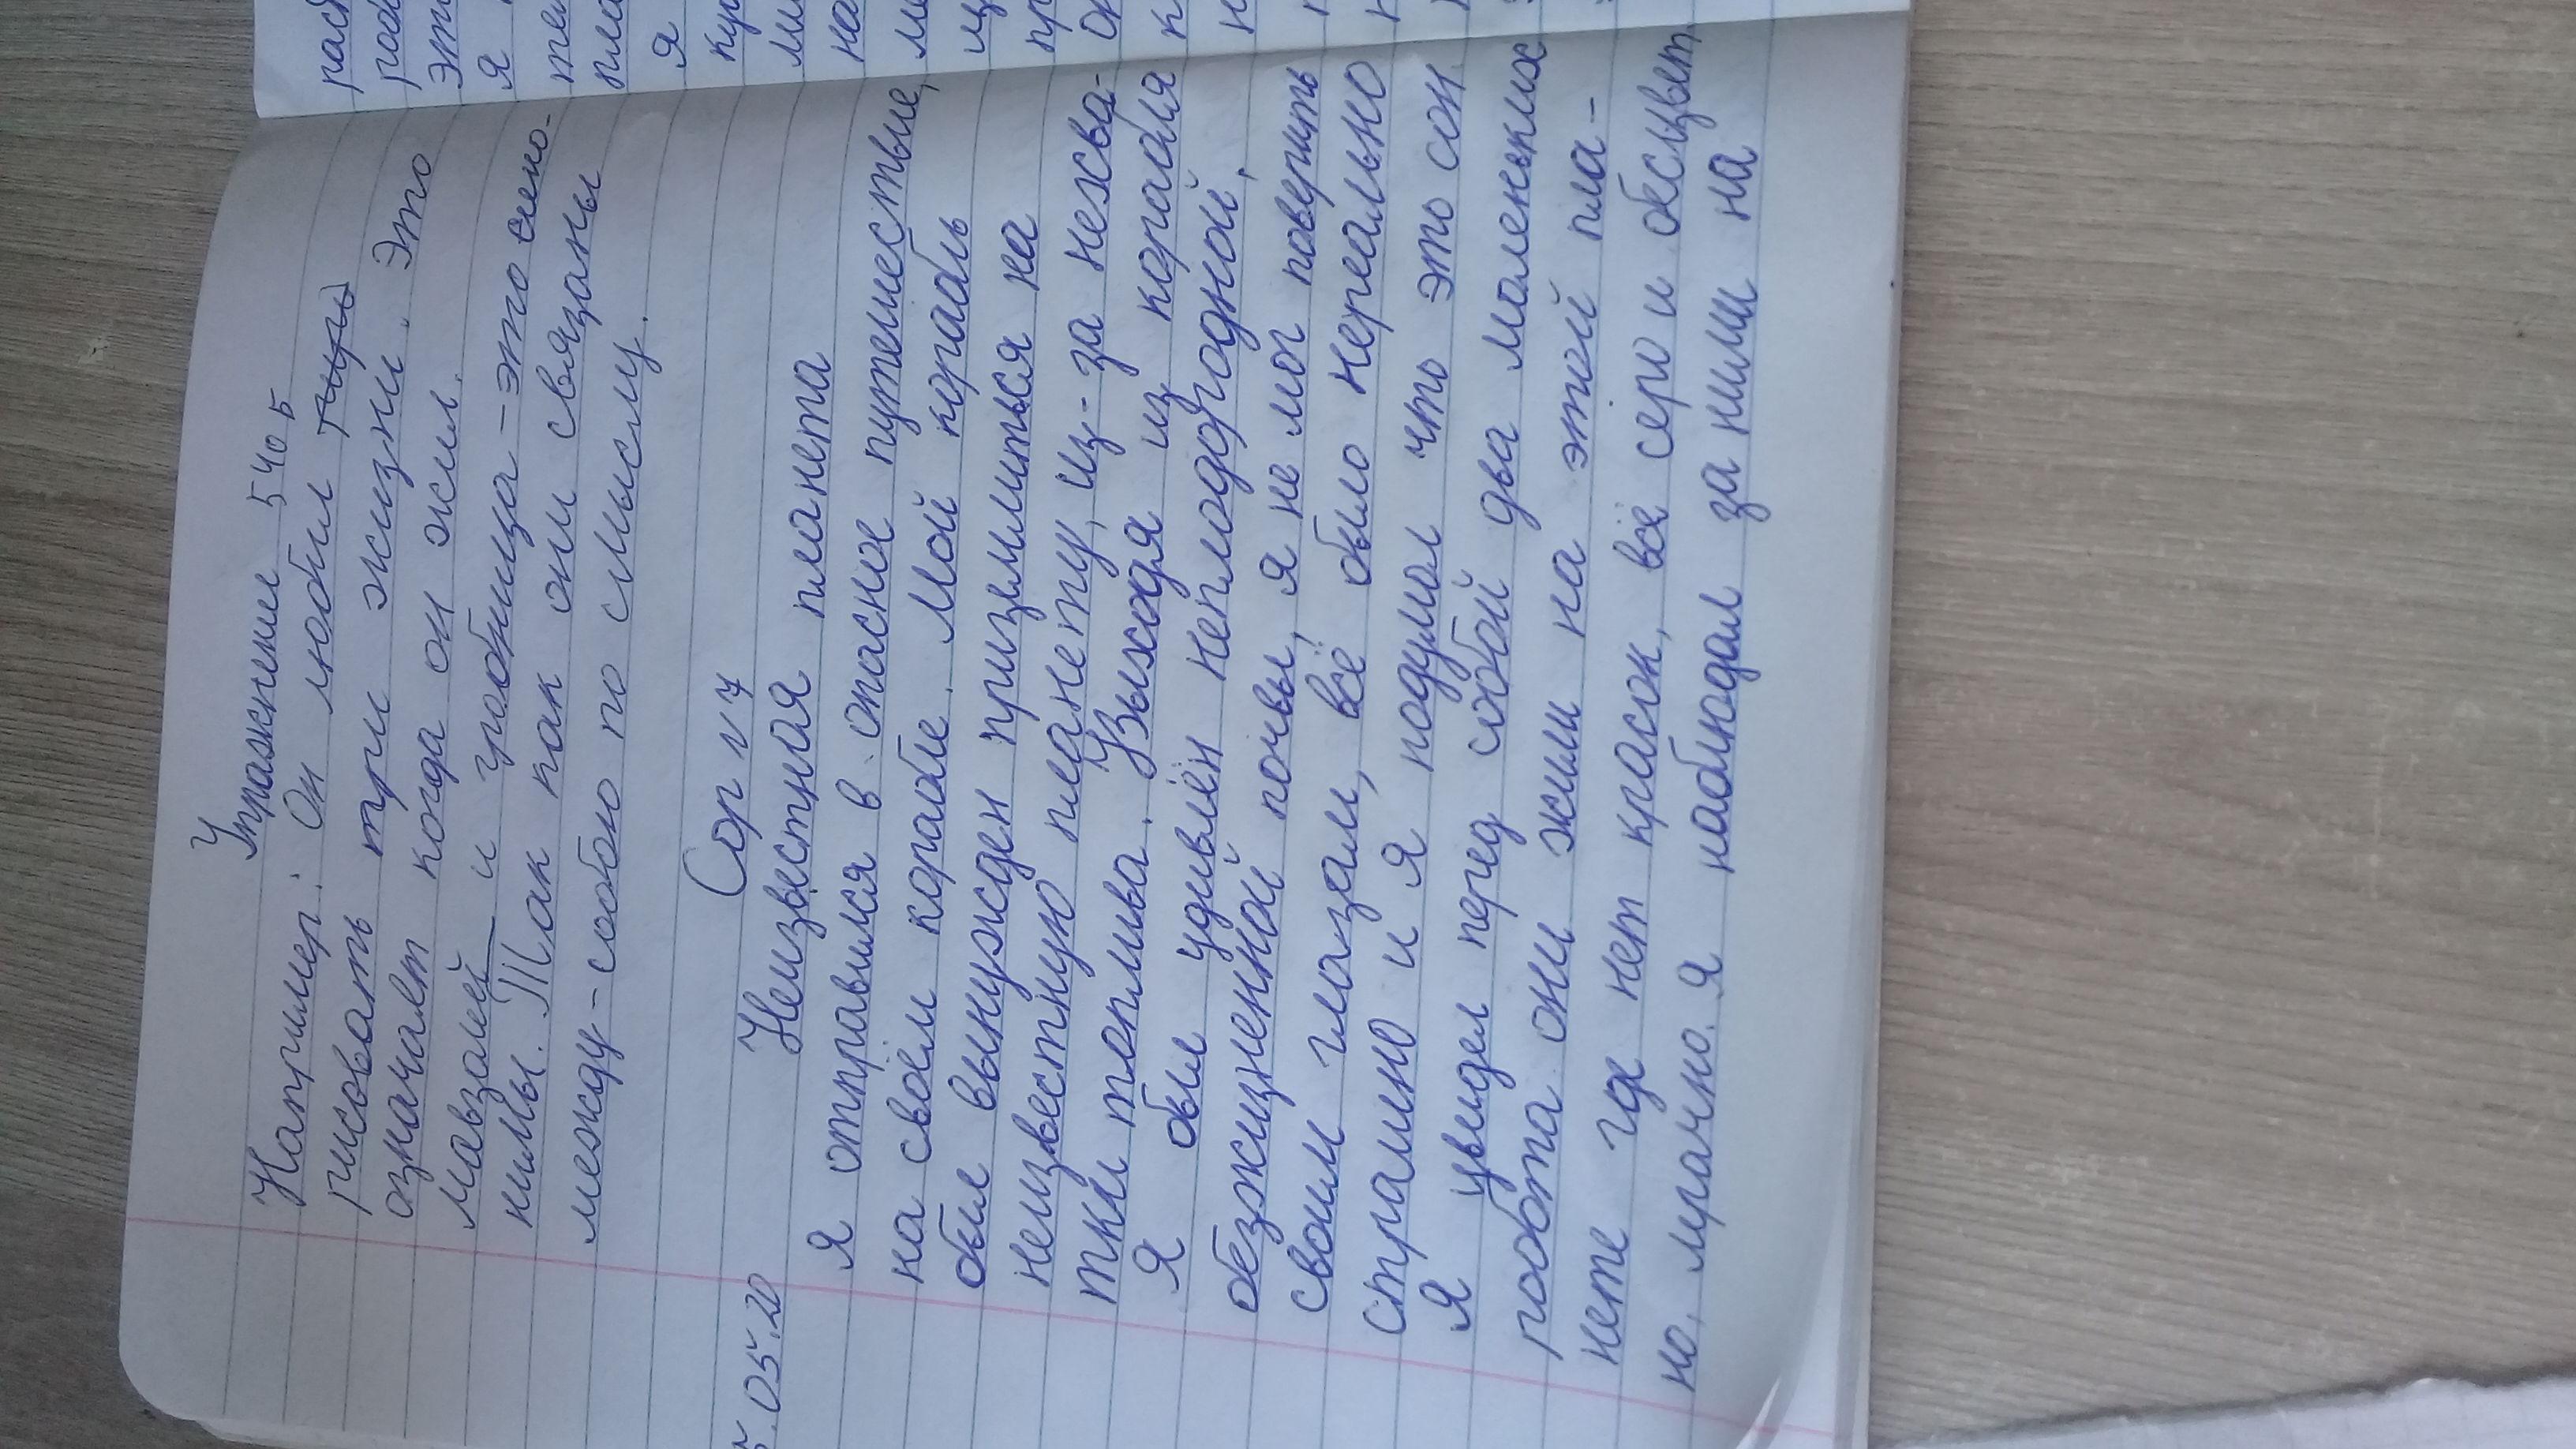 Упражнение 540 Б
Например: Он любил
рисовать при жизни. Это
означает когда он жил.
мавзолей и гробница - это сино-
нимы. Так как они связаны
между-собою по смыслу.
Сор №7
.05.20
Неизвестная планета
Я отправился в опасное путешествие,
на своём корабле. Мой корабль
был вынужден приземлиться на
неизвестную планету, из-за нехва-
тки топлива. Выходя из корабля
Я был удивлён неплодородной,
безжизненной почвы, я не мог поверить
своим глазам, всё было нереально
страшно и я подумал что это сон.
Я увидел перед собой два маленьких
робота они жили на этой пла-
нете где нет красок, всё серо и обесцвет-
но, мрачно. Я наблюдал за ними на
раст
роб
это
я
тел
пла
я
кур
ми
на
ме
щ
пр
он
к
н